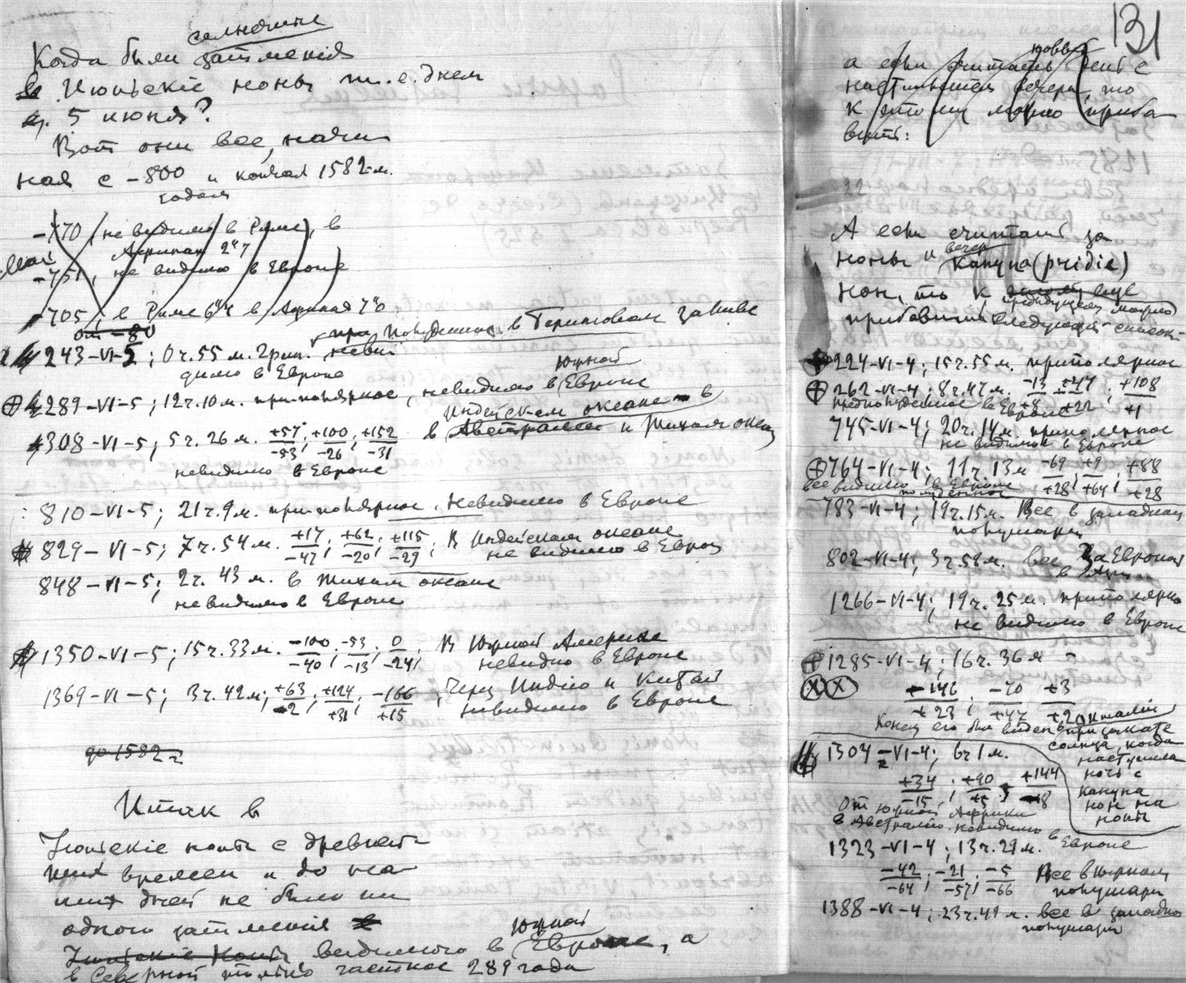 солнечные
Когда были затмения
в Июньскіе ноны т.е. днем
5 июня?
Вот они все, начи
ная с –800 и кончая 1582 м.
годом
–770 (не видимо в Риме), в
Африкан 2ч7
–751, не видимо в Европе
–705 в Риме 6ч4 в
от –80
243–VI–5; 0ч.55 м.
димо в Европе
289–VI–5; 12ч.10м. приполярное, невидимо в Южной Европе
Индейском океане в
308–VI–5; 5ч.26м. +57/–33; +100/–26; +152/–31 в Австралии и Тихом океа
невидимо в Европе
810–VI–5; 21ч.9м. приполярное. Невидимо в Европе
829–VI–5; 7ч.54м. +17/–47; +62/–20; +115/–29; В Индейском океане
не видимо в Европ
848–VI–5; 2ч.43м. в Тихом океане
невидимо в Европе
1350–VI–5; 15ч.33м. –100/–40; –53/–13; 0/–24; В Южной Америке
невидимо в Европе
1369–VI–5; 3ч.42м; +63/–2; +124/+31; –166/+15, Через Индию и Китай
невидимо в Европе
до 1582 г
Итак в
Июньскіе ноны с древней
ших времен и до на
ших дней не было ни
одного затмения
Июньскіе Ноны видимого в Южной Европе, а
в Северной только частное 289 года
131
а если считать новый день с
наступления вечера, то
к этому можно приба
вить:
А если считать за
ноны и вечер кануна (pridie)
нон, то к
предыдущему можно
прибавить следующий список
224–VI–4; 15ч.55м. приполярное
262–VI–4; 8ч.47м. –13/+8; +47/+22; +108/+1
в Европе
745–VI–4; 20ч.14м. приполярное
не видимое в Европе
764–VI–4; 11ч.13м –69/+28; +9/+64; +88/+28
все видимо в Европе
полуденное
783–VI–4; 19ч.15м. Все в западном
полушари
802–VI–4; 3ч.58м. все за Европой
в Азии
1266–VI–4; 19ч.25м. приполярно
не видимо в Европе
1285–VI–4; 16ч.36м –
–146/+23; –70/+47; +3/+20
Конец его был виден в Италии при закате
солнца, когда
наступила
ночь с
кануна
нон на
ноны
1304–VI–4; 6ч1м.
+34/–15; +90/+5; +144/–8
От Южной Африки
в Австралию. невидимо в
Европе
1323–VI–4; 13ч.29м.
–42/–64; –21/–57; –5/–66 Все в южном
полушари
1388–VI–4; 23ч.49м. все в западно
полушари